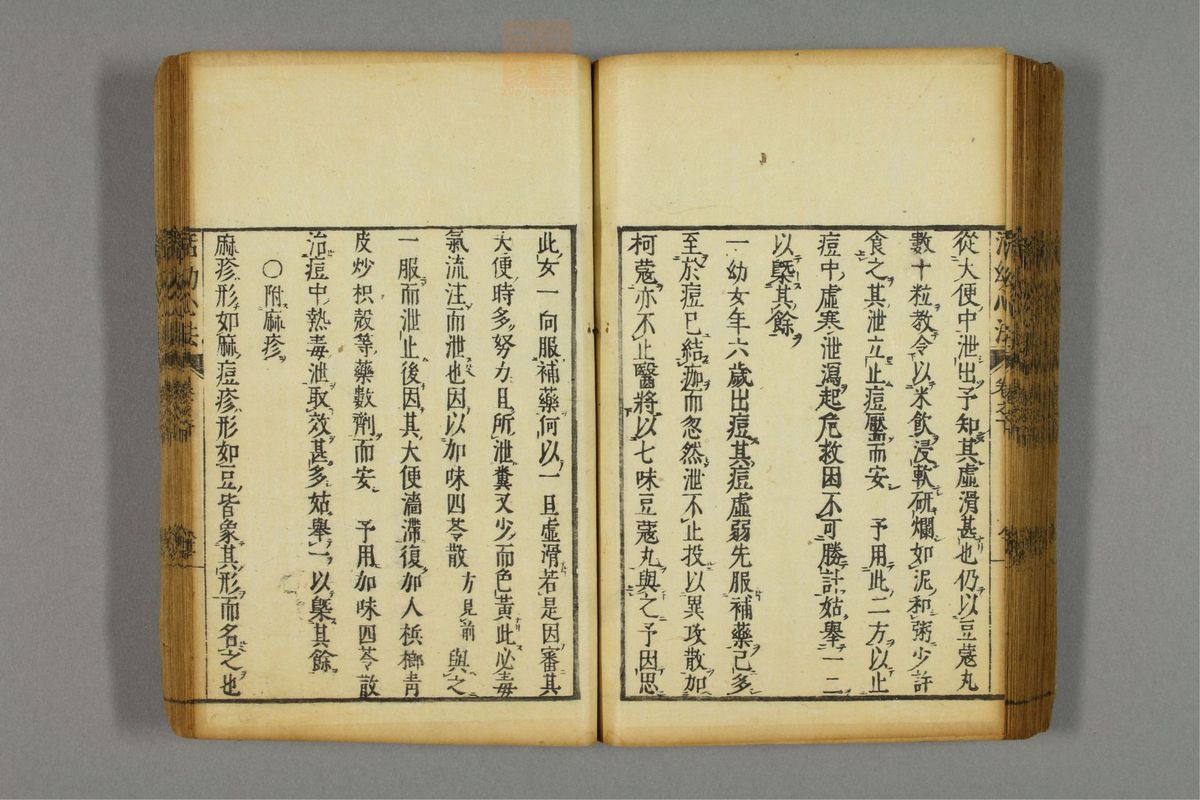 活幼心法 卷之下
從大便中泄出予知其虛滑甚也仍以豆蔻丸
數十粒教令以米飲浸軟研爛如泥和粥少許
食之其泄立止痘靨而安 予用此二方以止
痘中虛寒泄瀉起危救困不可勝計姑舉一二
以槩其餘
一幼女年六歲出痘其痘虛弱先服補藥已多
至於痘已結痂而忽然泄不止投以異攻散加
柯蔻亦不止醫將以七味豆蔻丸與之予因思
此女一向服補藥何以一旦虛滑若是因審其
大便時多努力且所泄糞又少而色黃此必毒
氣流注而泄也因以加味四苓散 方見前 與之
一服而泄止後因其大便濇滯復加人檳榔青
皮炒枳殼等藥數劑而安 予用加味四苓散
治痘中熱毒泄取效甚多姑舉一以槩其餘
〇附麻疹
麻疹形如麻痘疹形如豆皆象其形而名之也
活幼心法